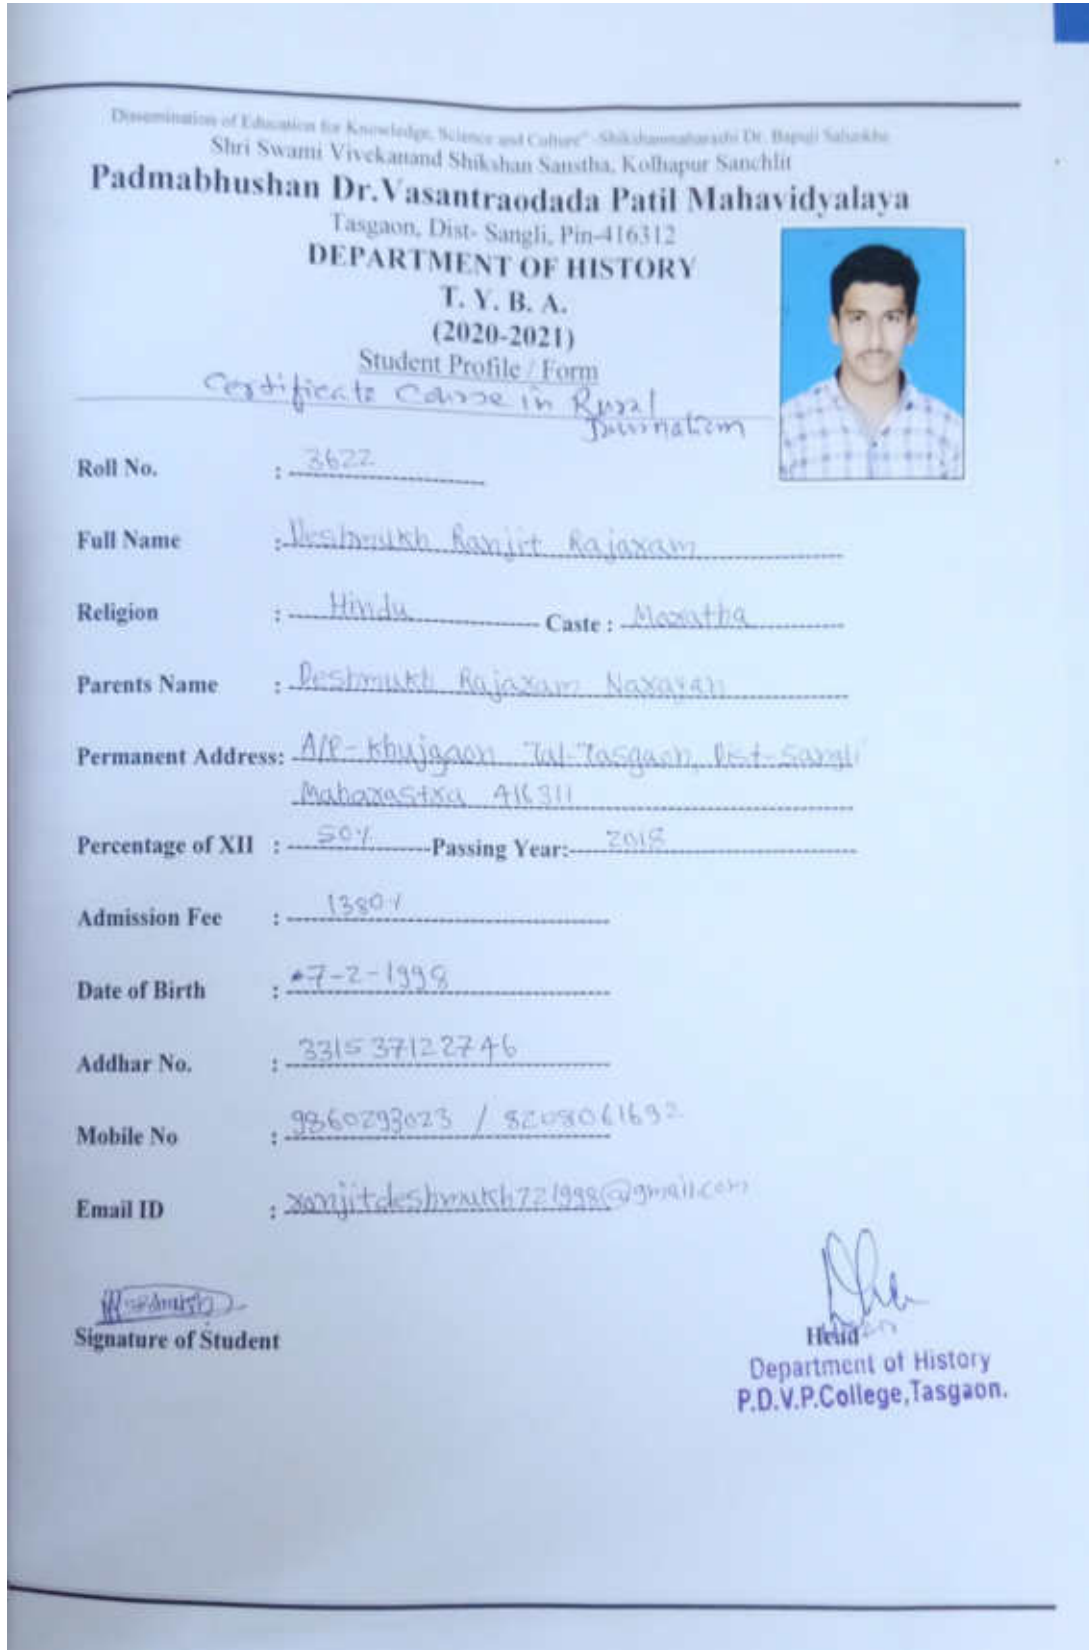 Dissemination of Education for Knowledge, Science and Culture" -Shikshanmaharshi Dr. Bapuji Salunkhe
Shri Swami Vivekanand Shikshan Sanstha, Kolhapur Sanchlit
Padmabhushan Dr.Vasantraodada Patil Mahavidyalaya
Tasgaon, Dist- Sangli, Pin-416312
DEPARTMENT OF HISTORY
T. Y. B. A.
(2020-2021)
Student Profile / Form
Certificate Course in Rural
Journalism
Roll No. : 3622
Full Name : Deshmukh Ranjit Rajaram
Religion : Hindu Caste : Maratha
Parents Name : Deshmukh Rajaram Narayan
Permanent Address: A/P- Khujgaon Tal-Tasgaon, Dist-Sangli
Maharastra 416311
Percentage of XII : 50% Passing Year: 2018
Admission Fee : 1380/
Date of Birth : 7-2-1998
Addhar No. : 331537122746
Mobile No : 9860293023 / 8208061692
Email ID : ranjitdeshmukh721998@gmail.com
Signature of Student
Head
Department of History
P.D.V.P.College,Tasgaon.